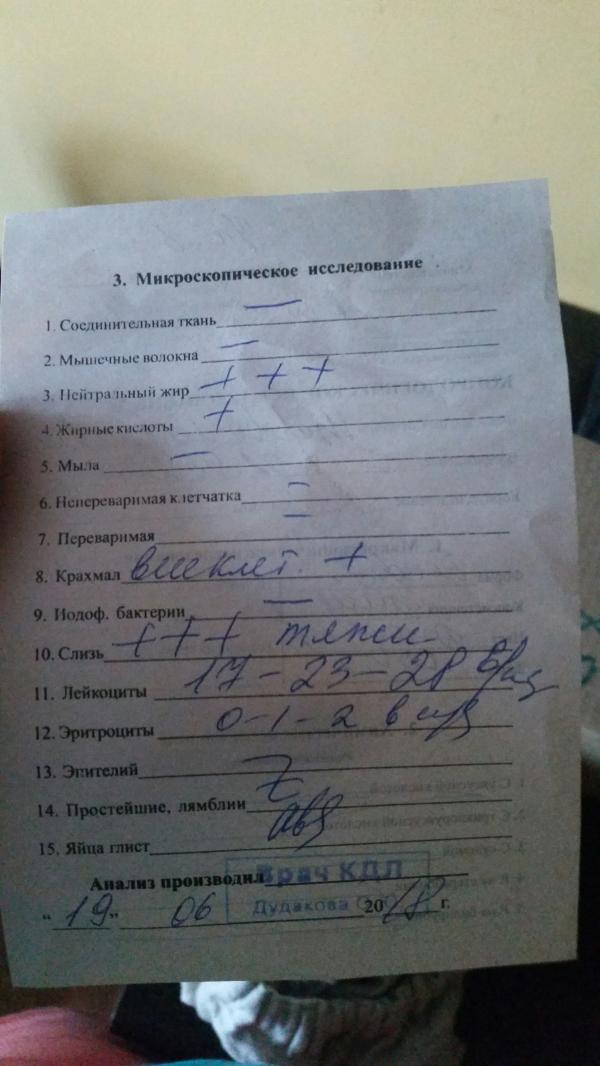 3. Микроскопическое исследование
1. Соединительная ткань —
2. Мышечные волокна —
3. Нейтральный жир + + +
4. Жирные кислоты +
5. Мыла —
6. Непереваримая клетчатка —
7. Переваримая —
8. Крахмал внеклет. +
9. Иодоф. бактерии —
10. Слизь +++ тяжи
11. Лейкоциты 17-23-28 в п/з
12. Эритроциты 0-1-2 в п/з
13. Эпителий
14. Простейшие, лямблии
15. Яйца глист
Анализ производил Врач КДЛ
Дудакова
"19" 06 2018 г.